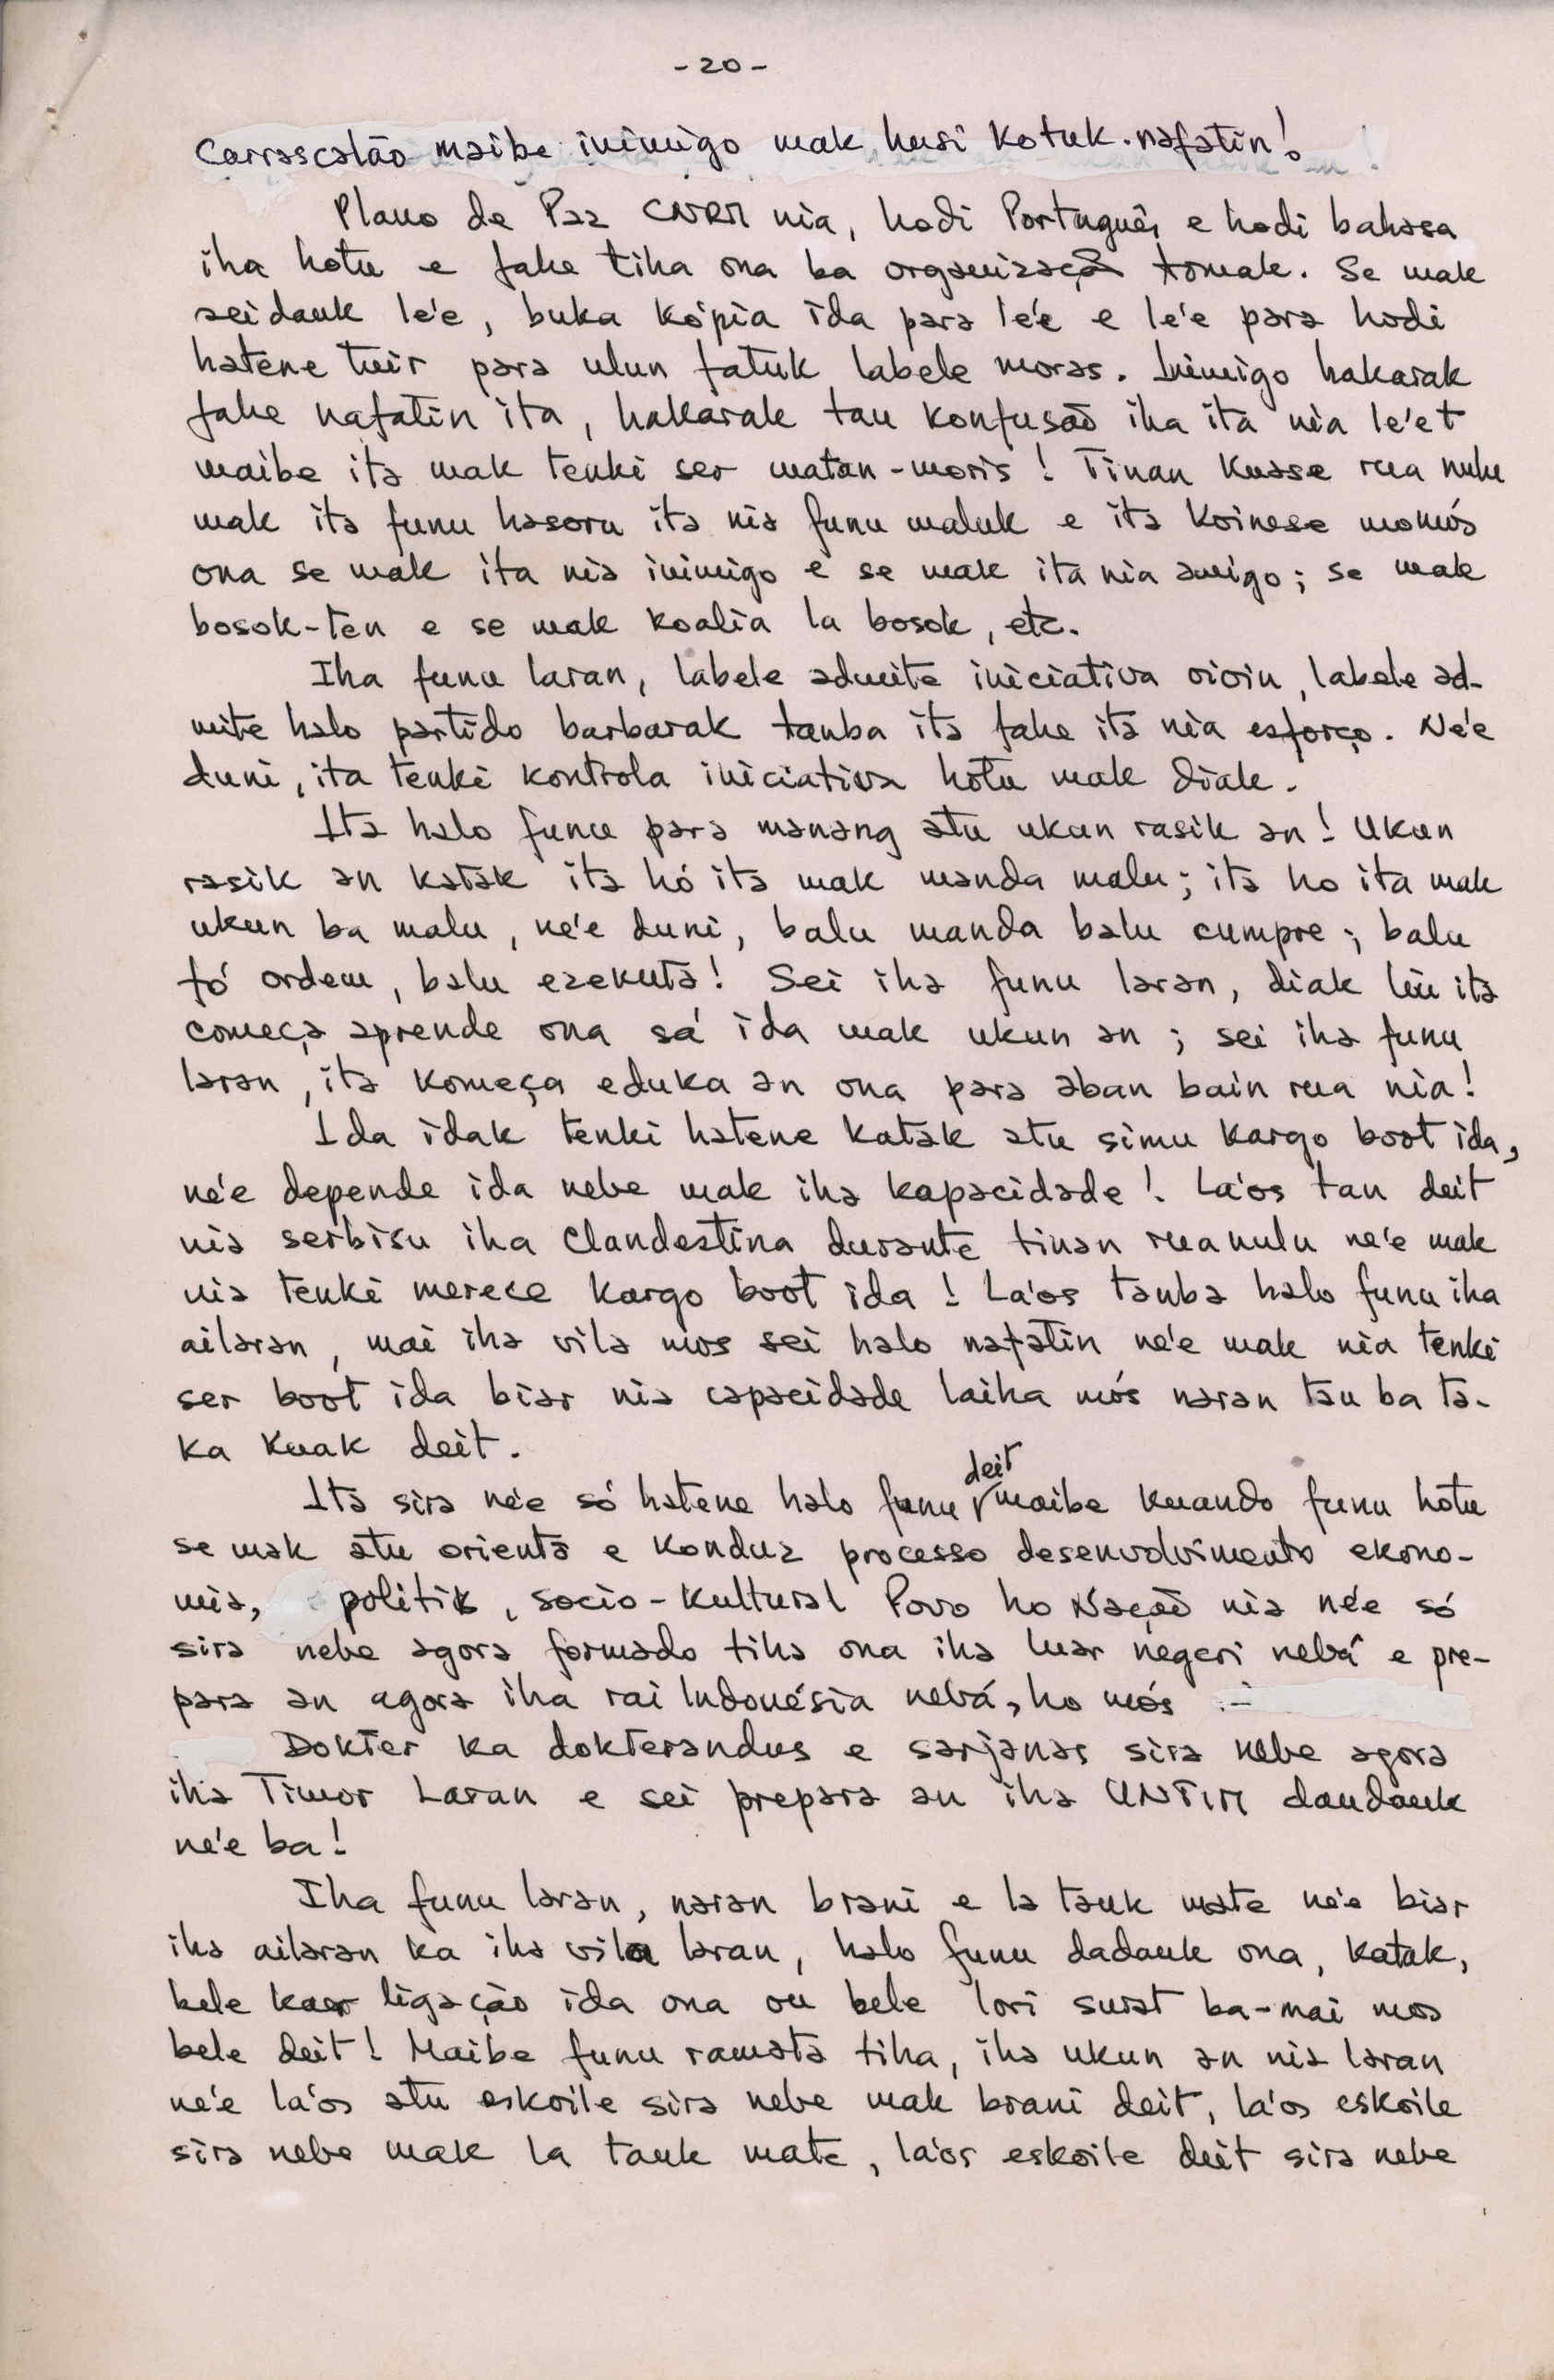 - 20 -
Carrascalão maibe inimigo mak husi kotuk. nafatin!
Plano de Paz CNRM nia, hodi Português e hodi bahasa
iha hotu e fahe tiha ona ba organização tomak. Se mak
seidauk le'e, buka kópia ida para le'e e le'e para hodi
hatene tuir para ulun fatuk labele moras. Inimigo hakarak
fahe nafatin ita, hakarak tau konfusão iha ita nia le'et
maibe ita mak tenki ser matan-moris! Tinan kuase rua nulu
mak ita funu hasoru ita nia funu maluk e ita koinese momós
ona se mak ita nia inimigo e se mak ita nia amigo; se mak
bosok-ten e se mak koalia la bosok, etc.
Iha funu laran, labele admite iniciativa oioin, labele ad-
mite halo partido barbarak tanba ita fahe ita nia esforço. Ne'e
duni, ita tenki kontrola iniciativa hotu mak diak.
Ita halo funu para manang atu ukun rasik an! Ukun
rasik an katak ita hó ita mak manda malu; ita ho ita mak
ukun ba malu, ne'e duni, balu manda balu cumpre; balu
fó ordem, balu ezekuta! Sei iha funu laran, diak liu ita
começa aprende ona sá ida mak ukun an; sei iha funu
laran, ita komeça eduka an ona para aban bain rua nia!
Ida idak tenki hatene katak atu simu kargo boot ida,
ne'e depende ida nebe mak iha kapacidade! La'os tan deit
nia serbisu iha Clandestina durante tinan rua nulu ne'e mak
nia tenki merece kargo boot ida! La'os tanba halo funu iha
ailaran, mai iha vila mos sei halo nafatin ne'e mak nia tenki
ser boot ida biar nia capacidade laiha mós naran tau ba ta-
ka kuak deit.
Ita sira ne'e só hatene halo funu deit maibe kuando funu hotu
se mak atu orienta e konduz processo desenvolvimento ekono-
mia, politik, socio-kultural Povo ho Nação nia ne'e só
sira nebe agora formado tiha ona iha luar negeri nebá e pre-
para an agora iha rai Indonésia nebá, ho mós :-
Dokter ka dokterandus e sarjanas sira nebe agora
iha Timor Laran e sei prepara an iha UNTIM daudauk
ne'e ba!
Iha funu laran, naran brani e la tauk mate ne'e biar
iha ailaran ka iha vila laran, halo funu dadauk ona, katak,
bele kaer ligação ida ona ou bele lori surat ba-mai mos
bele deit! Maibe funu ramata tiha, iha ukun an nia laran
ne'e la'os atu eskoile sira nebe mak brani deit, la'os eskoile
sira nebe mak la tauk mate, la'os eskoile deit sira nebe